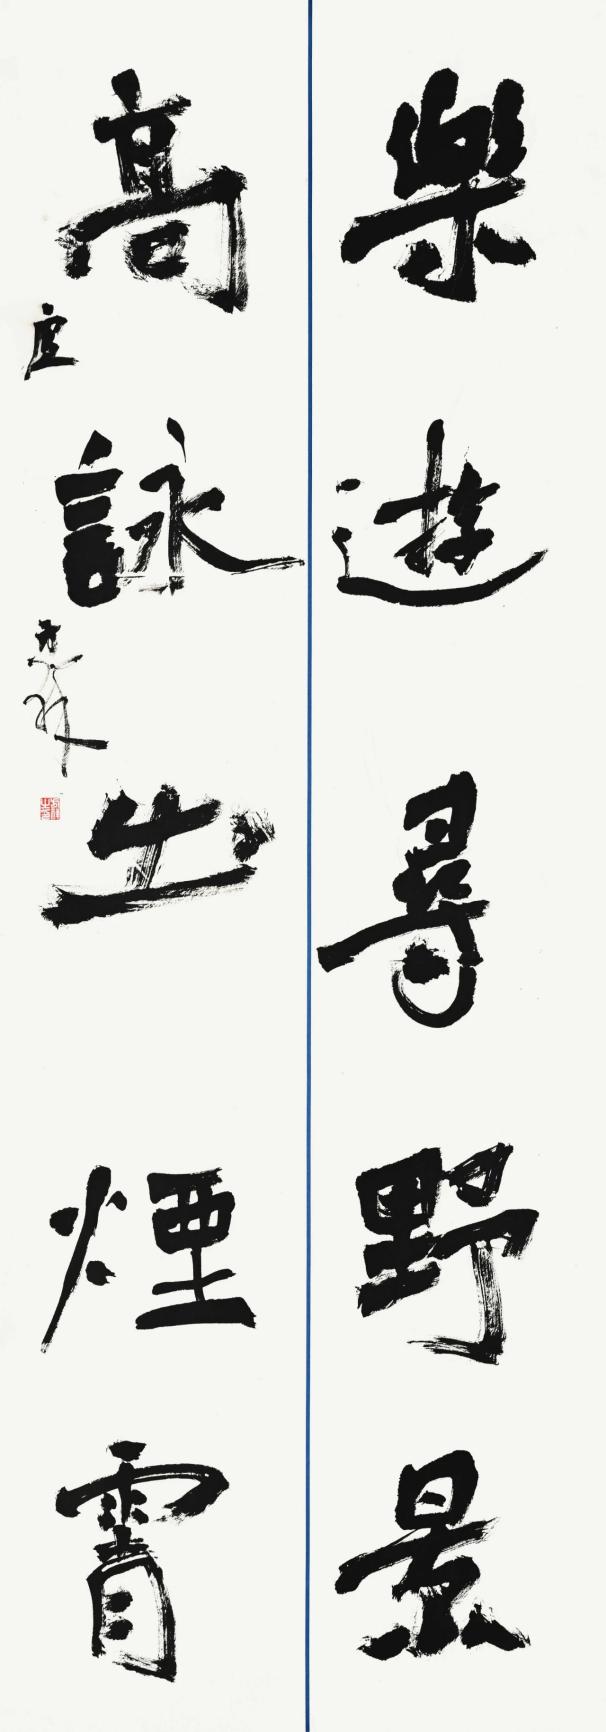 樂遊尋野景
高詠出煙霄